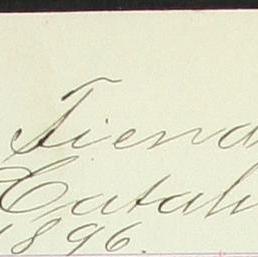 Tiend
Catal
1896.